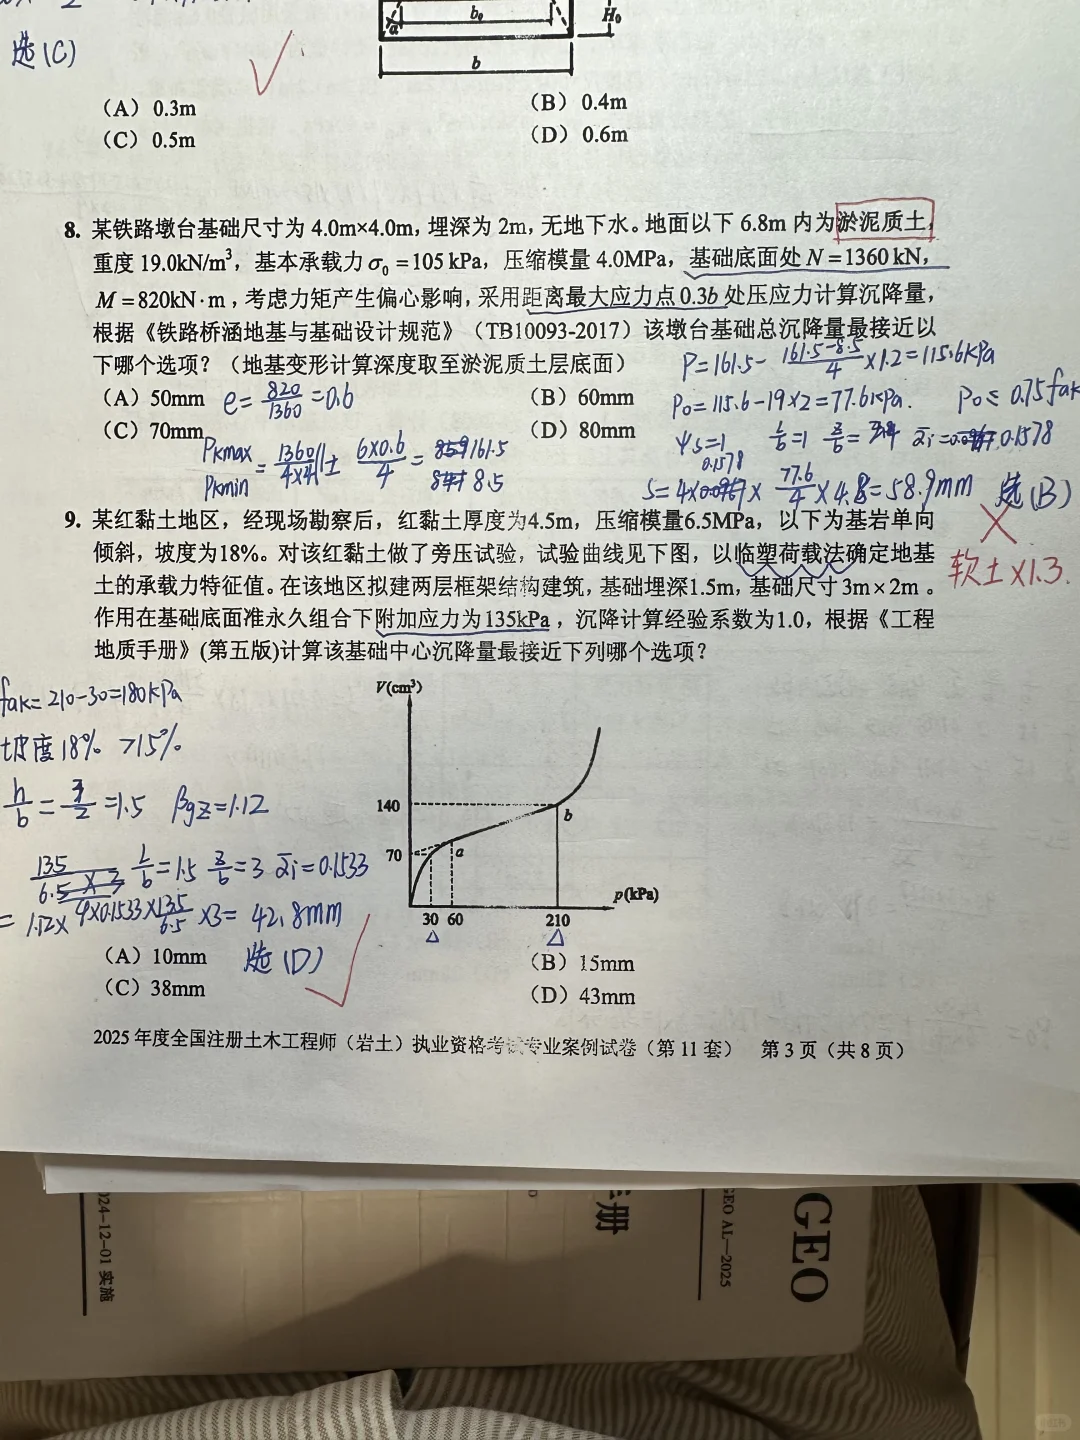 选(C)
b₀
a
H₀
b
（A）0.3m
（B）0.4m
（C）0.5m
（D）0.6m
8. 某铁路墩台基础尺寸为 4.0m×4.0m，埋深为 2m，无地下水。地面以下 6.8m 内为淤泥质土，
重度 19.0kN/m³，基本承载力 σ₀ =105 kPa，压缩模量 4.0MPa，基础底面处 N =1360 kN，
M =820kN·m，考虑力矩产生偏心影响，采用距离最大应力点 0.3b 处压应力计算沉降量，
根据《铁路桥涵地基与基础设计规范》（TB10093-2017）该墩台基础总沉降量最接近以
下哪个选项？（地基变形计算深度取至淤泥质土层底面）
P=161.5- (161.5-8.5)/4 ×1.2=115.6kPa
（A）50mm
e= 820/1360 =0.6
（B）60mm
P₀=115.6-19×2=77.6kPa. P₀≤0.75fak
（C）70mm
（D）80mm
ψs=1 l/b=1 z/b= ᾱi= 0.1578
Pkmax
Pkmin
= 1360/4×4 (1± 6×0.6/4 = 161.5
8.5
0.1578
S=4× × 77.6/4 ×4.8=58.9mm 选(B)
9. 某红黏土地区，经现场勘察后，红黏土厚度为4.5m，压缩模量6.5MPa，以下为基岩单向
倾斜，坡度为18%。对该红黏土做了旁压试验，试验曲线见下图，以临塑荷载法确定地基
软土×1.3.
土的承载力特征值。在该地区拟建两层框架结构建筑，基础埋深1.5m，基础尺寸3m×2m 。
作用在基础底面准永久组合下附加应力为135kPa，沉降计算经验系数为1.0，根据《工程
地质手册》(第五版)计算该基础中心沉降量最接近下列哪个选项？
fak=210-30=180kPa
坡度18% >15%
h/b = 3/2 =1.5 βgz=1.12
l/b=1.5 z/b=3 ᾱi=0.1533
= 1.12× 4×0.1533× 135/6.5 ×3= 42.8mm
V(cm³)
140
b
70
a
p(kPa)
30 60 210
（A）10mm
选(D)
（B）15mm
（C）38mm
（D）43mm
2025 年度全国注册土木工程师（岩土）执业资格考试专业案例试卷（第 11 套） 第 3 页（共 8 页）
024-12-01 实施
册
GEO AL—2025
GEO